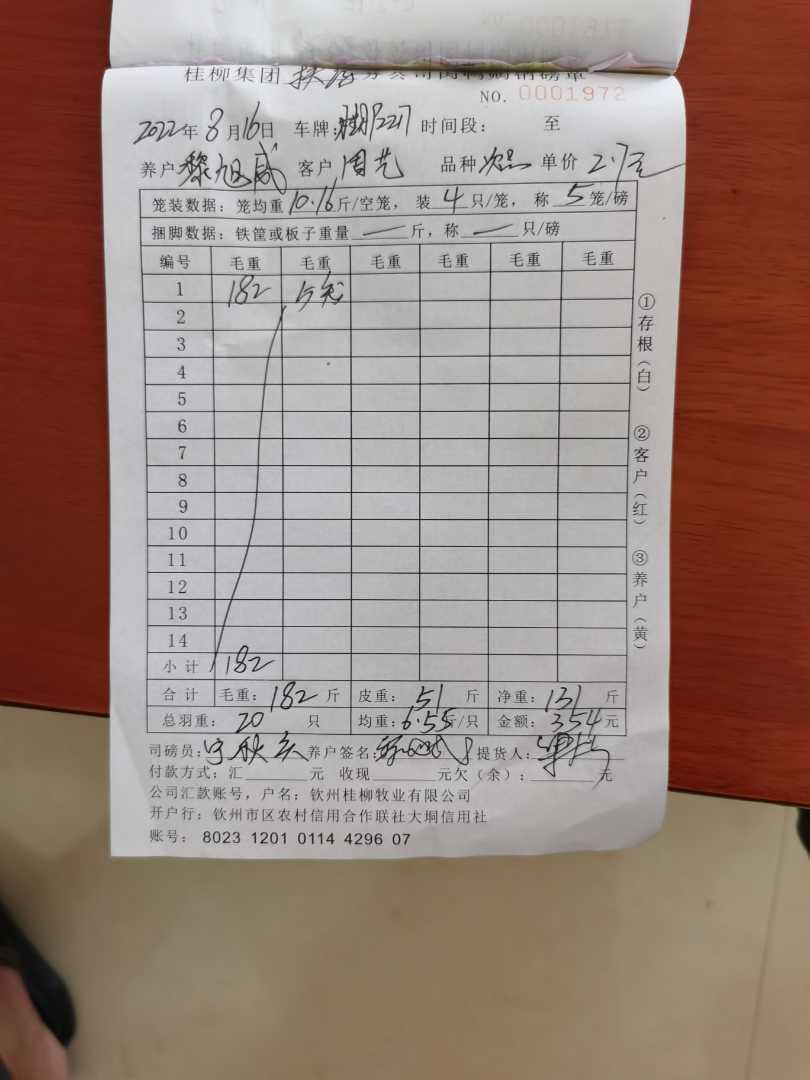 桂柳集团
NO. 0001972
2022年8月16日 车牌: 时间段: 至
养户黎旭威 客户周艺 品种次品 单价2.7元
笼装数据: 笼均重10.16斤/空笼, 装4只/笼, 称5笼/磅
捆脚数据: 铁筐或板子重量—斤, 称—只/磅
编号 毛重 毛重 毛重 毛重 毛重 毛重
1 182 5笼
2
3
4
5
6
7
8
9
10
11
12
13
14
小计 182
合计 毛重: 182 斤 皮重: 51 斤 净重: 131 斤
总羽重: 20 只 均重: 6.55斤/只 金额: 354元
司磅员: 养户签名: 提货人:
付款方式: 汇____元 收现____元欠(余): ____元
公司汇款账号, 户名: 钦州桂柳牧业有限公司
开户行: 钦州市区农村信用合作联社大垌信用社
账号: 8023 1201 0114 4296 07
①存根(白) ②客户(红) ③养户(黄)